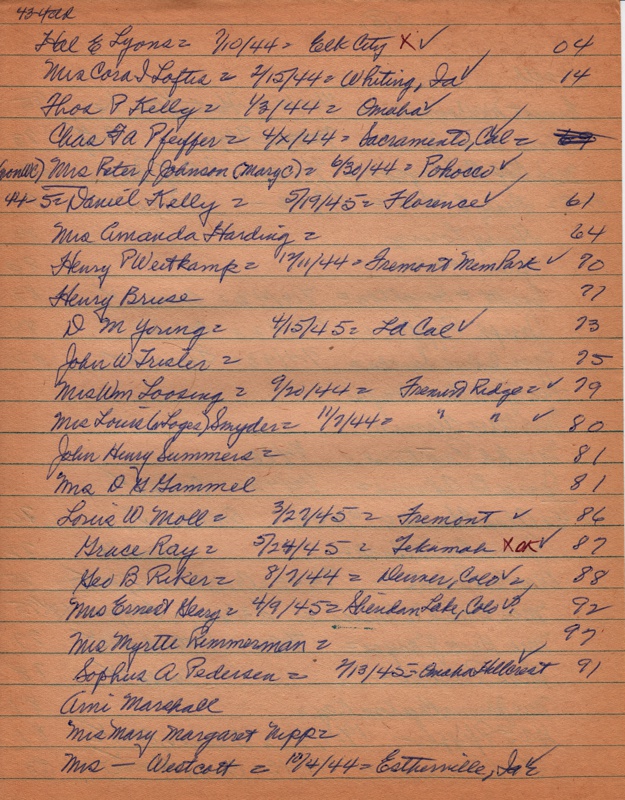 43-44
Hal E Lyons = 7/10/44 = Elk City X ✓ 04
Mrs Cora I Loftis = 2/15/44 = Whiting, Ia ✓ 14
Thos P Kelly = 1/3/44 = Omaha ✓
Chas Pfeyffer = 4/x/44 = Sacramento, Cal =
Mrs Peter J Johnson (Mary C) = 6/30/44 = Pohocco ✓
44-5 = Daniel Kelly = 5/19/45 = Florence ✓ 61
Mrs Amanda Harding = 64
Henry P Weitkamp = 12/11/44 = Fremont Mem Park ✓ 70
Henry Bruse 77
D M Young = 4/15/45 = La Cal ✓ 73
John W Trisler = 75
Mrs Wm Loosing = 9/20/44 = Fremont Ridge = ✓ 79
Mrs Louis (Loges) Smyder = 11/7/44 = " " ✓ 80
John Henry Summers = 81
Mrs D G Gammel 81
Louis W Moll = 3/27/45 = Fremont ✓ 86
Grace Ray = 5/24/45 = Tekamah ✓ 87
Geo B Riker = 8/7/44 = Denver, Colo ✓ = 88
Mrs Ernest Geary = 4/9/45 = Sheridan Lake, Colo ✓? 92
Mrs Myrtle Rimmerman = 97
Sophus A Pedersen = 7/13/45 = Omaha Hillcrest ✓ 91
Ami Marshall
Mrs Mary Margaret Nipp =
Mrs — Westcott = 10/4/44 = Estherville, Ia ✓